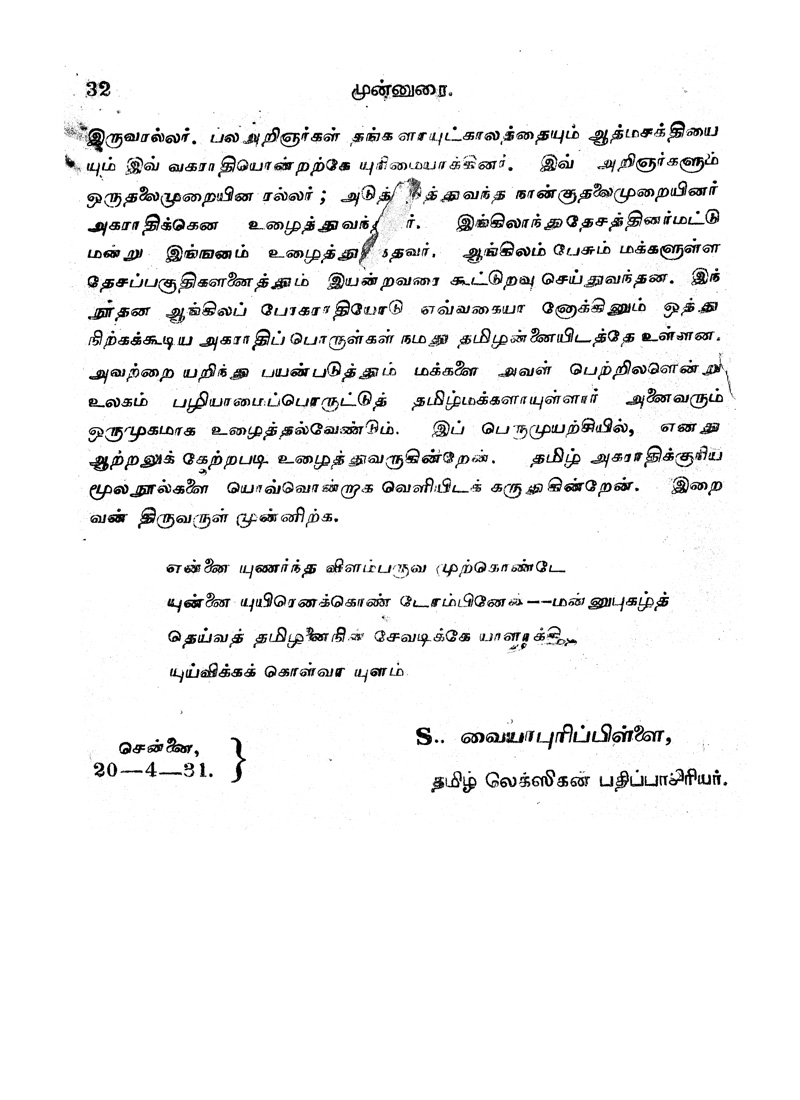 32 முன்னுரை.
இருவரல்லர். பல அறிஞர்கள் தங்களாயுட்காலத்தையும் ஆத்மசக்தியை
யும் இவ் வகராதியொன்றற்கே யுரிமையாக்கினர். இவ் அறிஞர்களும்
ஒருதலைமுறையின ரல்லர் ; அடுத் துத்துவந்த நான்குதலைமுறையினர்
அகராதிக்கென உழைத்துவந் ர். இங்கிலாந்துதேசத்தினர்மட்டு
மன்று இங்ஙனம் உழைத்து தவர். ஆங்கிலம் பேசும் மக்களுள்ள
தேசப்பகுதிகளனைத்தும் இயன்றவரை கூட்டுறவு செய்துவந்தன. இந்
நூதன ஆங்கிலப் பேரகராதியோடு எவ்வகையா னோக்கினும் ஒத்து
நிற்கக்கூடிய அகராதிப் பொருள்கள் நமது தமிழன்னையிடத்தே உள்ளன.
அவற்றை யறிந்து பயன்படுத்தும் மக்களை அவள் பெற்றிலளென்று
உலகம் பழியாமைப்பொருட்டுத் தமிழ்மக்களாயுள்ளார் அனைவரும்
ஒருமுகமாக உழைத்தல்வேண்டும். இப் பெருமுயற்சியில், எனது
ஆற்றலுக் கேற்றபடி உழைத்துவருகின்றேன். தமிழ் அகராதிக்குரிய
மூலநூல்களை யொவ்வொன்றாக வெளியிடக் கருதுகின்றேன். இறை
வன் திருவருள் முன்னிற்க.
என்னை யுணர்ந்த விளம்பருவ முற்கொண்டே
யுன்னை யுயிரெனக்கொண் டோம்பினேன்--மன்னுபுகழ்த்
தெய்வத் தமிழனைநின் சேவடிக்கே யாளாக்கி
யுய்விக்கக் கொள்வா யுளம்
சென்னை,
20—4—31.
S.. வையாபுரிப்பிள்ளை,
தமிழ் லெக்ஸிகன் பதிப்பாசிரியர்.